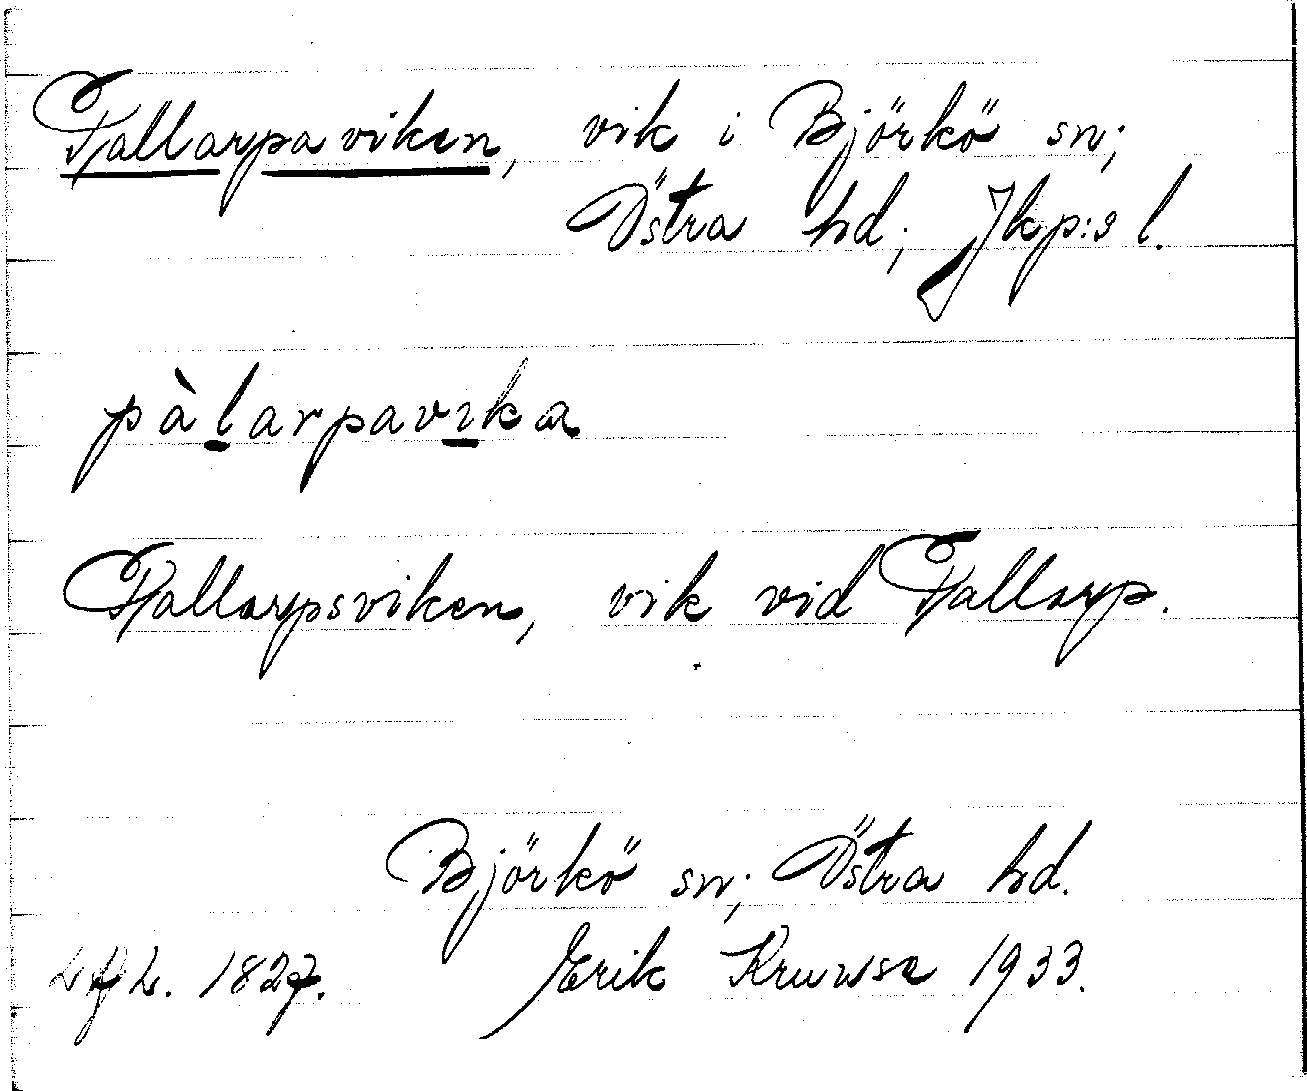 Pallarpaviken, vik i Björkö sn;
Östra hd; Jkp:s l.
pàlarpavika
Pallarpsviken, vik vid Pallarp.
Björkö sn; Östra hd.
1827. Erik Kruuse 1933.